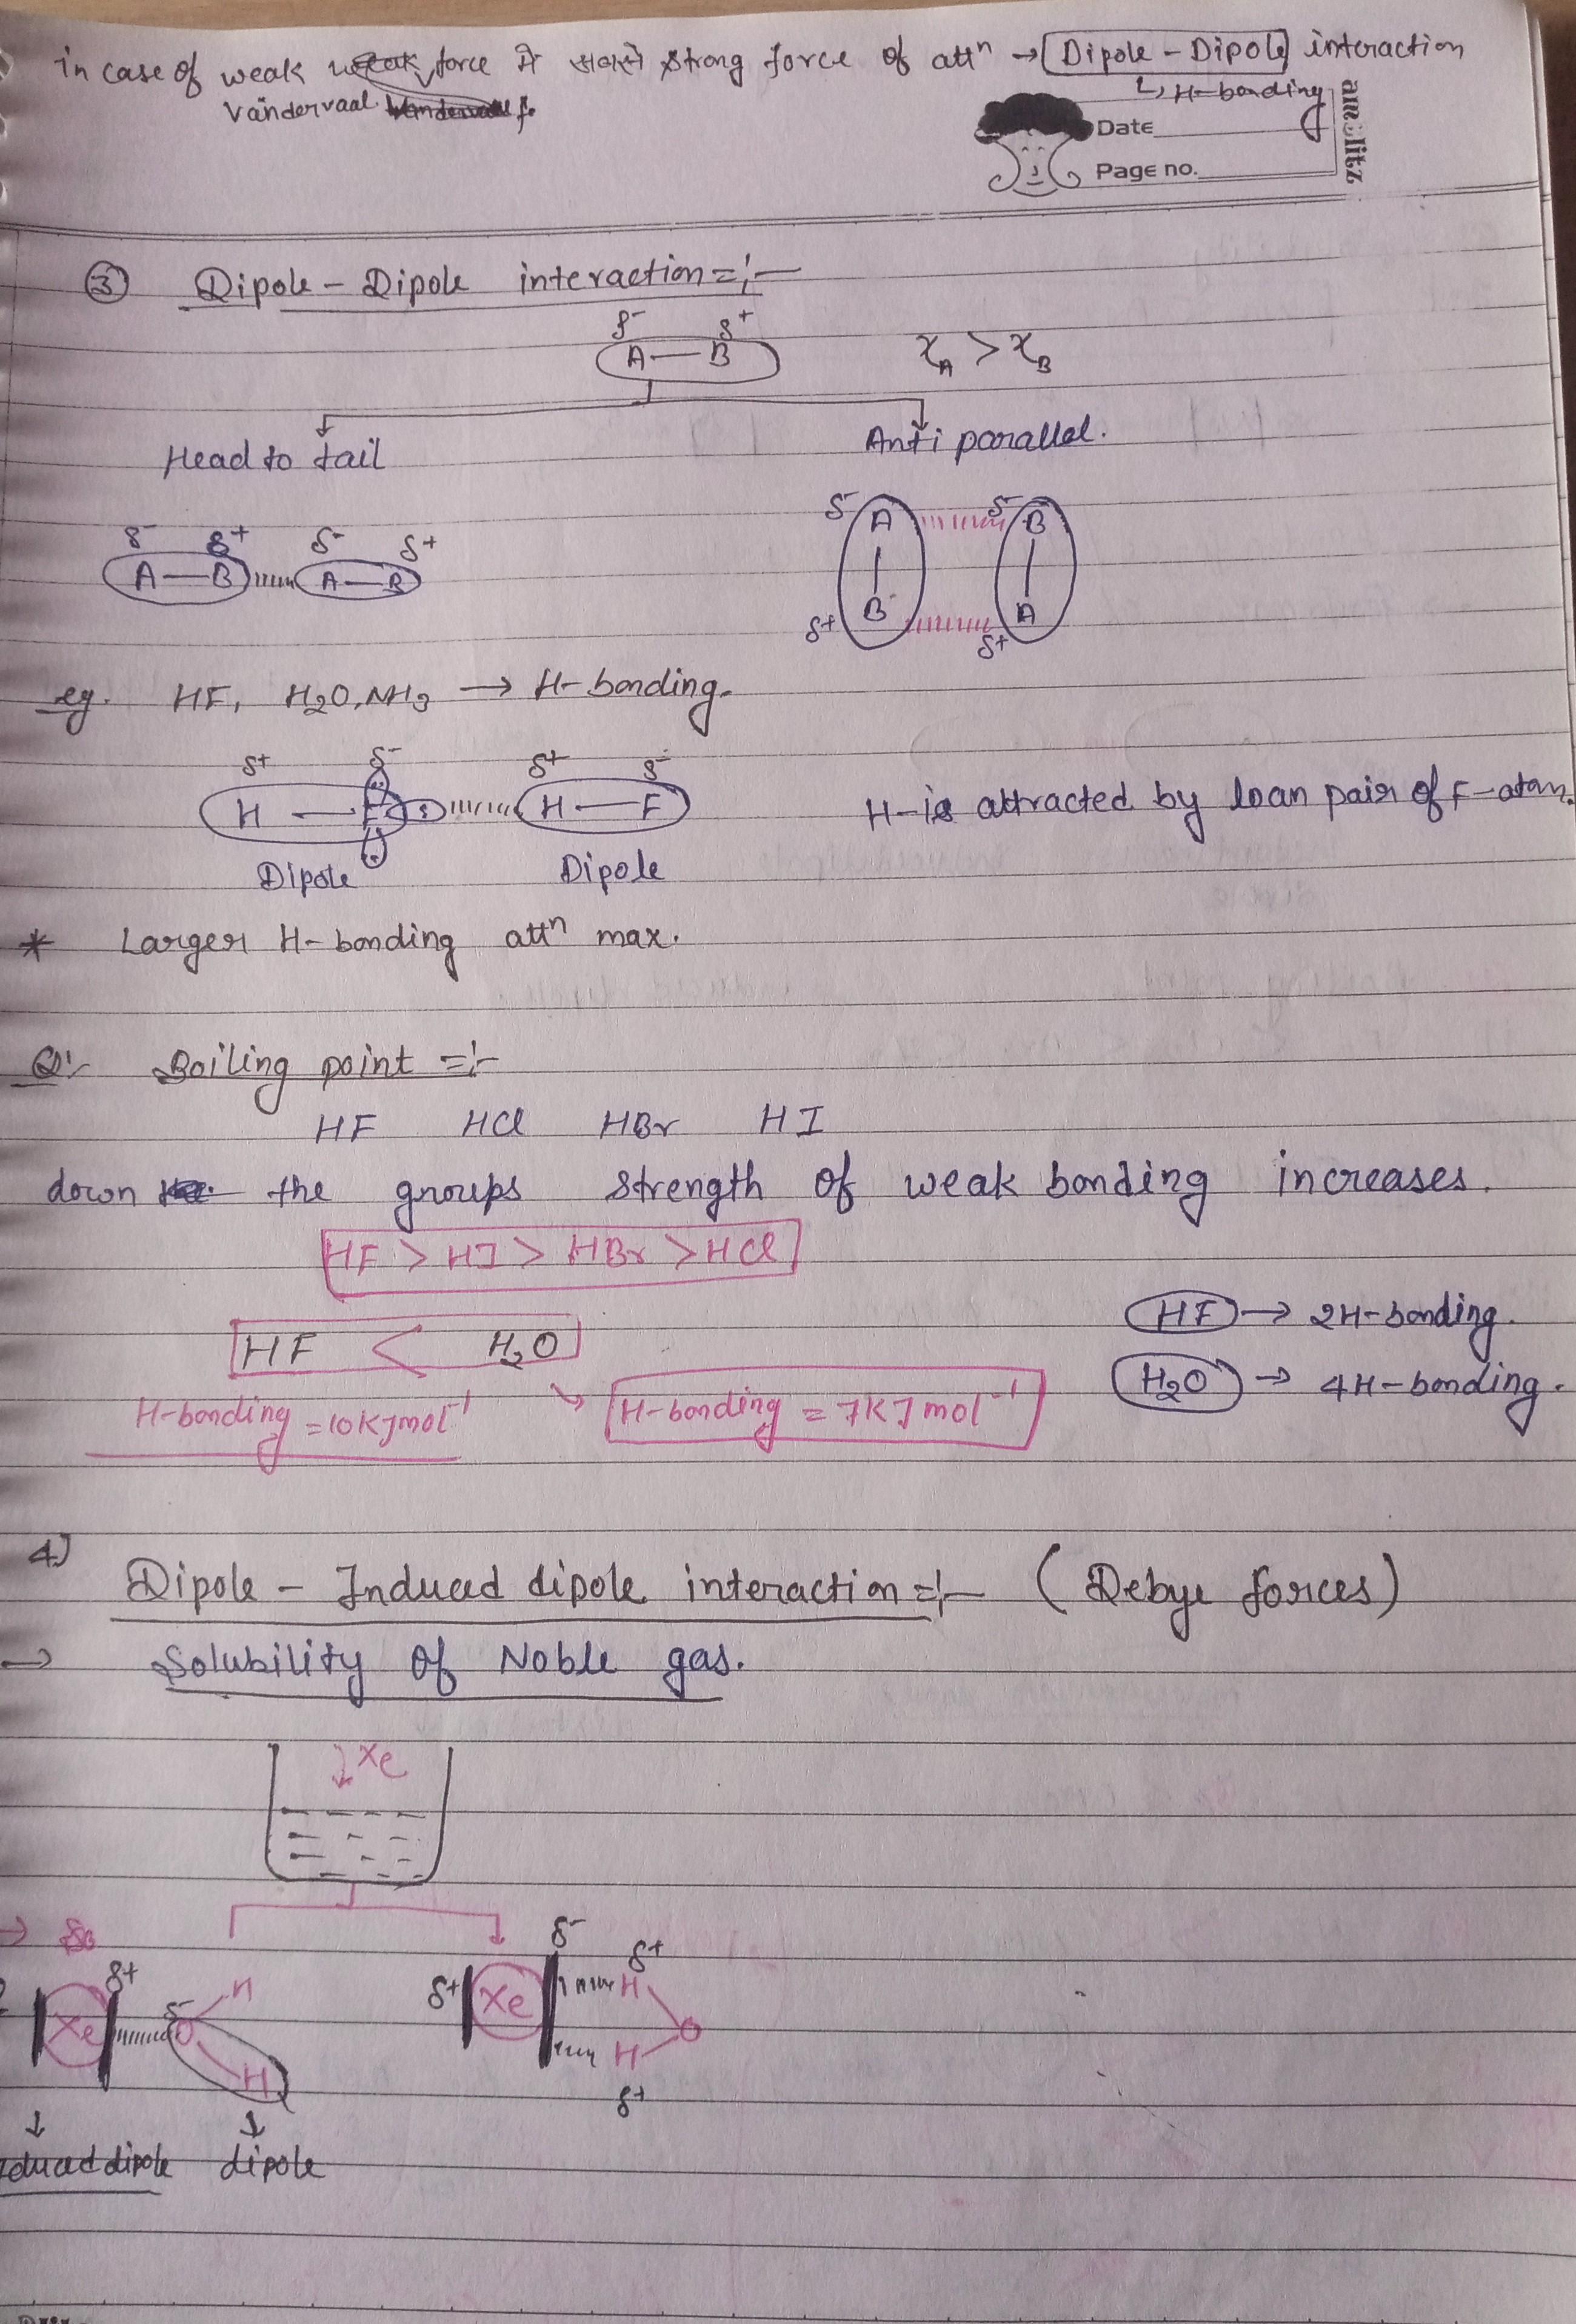 in case of weak force में सबसे strong force of attⁿ → Dipole - Dipole interaction
Vandervaal
↳ H-bonding
Date
Page no.
amolitz
③ Dipole - Dipole interaction =:-
δ- δ+
A — B χA > χB
Head to tail Anti parallel.
δ- δ+ δ- δ+
A — B A — B
δ- δ-
A B
B A
δ+ δ+
eg. HF, H2O, NH3 → H-bonding.
δ+ δ- δ+ δ-
H — F H — F H-is attracted by loan pair of F-atom.
Dipole Dipole
* Larger H-bonding attⁿ max.
Q:- Boiling point =:-
HF HCl HBr HI
down the groups strength of weak bonding increases.
HF > HI > HBr > HCl
HF → 2H-bonding.
HF < H2O
H2O → 4H-bonding.
H-bonding = 10KJmol⁻¹ H-bonding = 7KJmol⁻¹
4) Dipole - Induced dipole interaction =:- (Debye forces)
→ Solubility of Noble gas.
↓Xe
δ- δ+
δ+ H δ+ Xe H
Xe δ- O O
H H
δ+
↓ ↓
duced dipole dipole